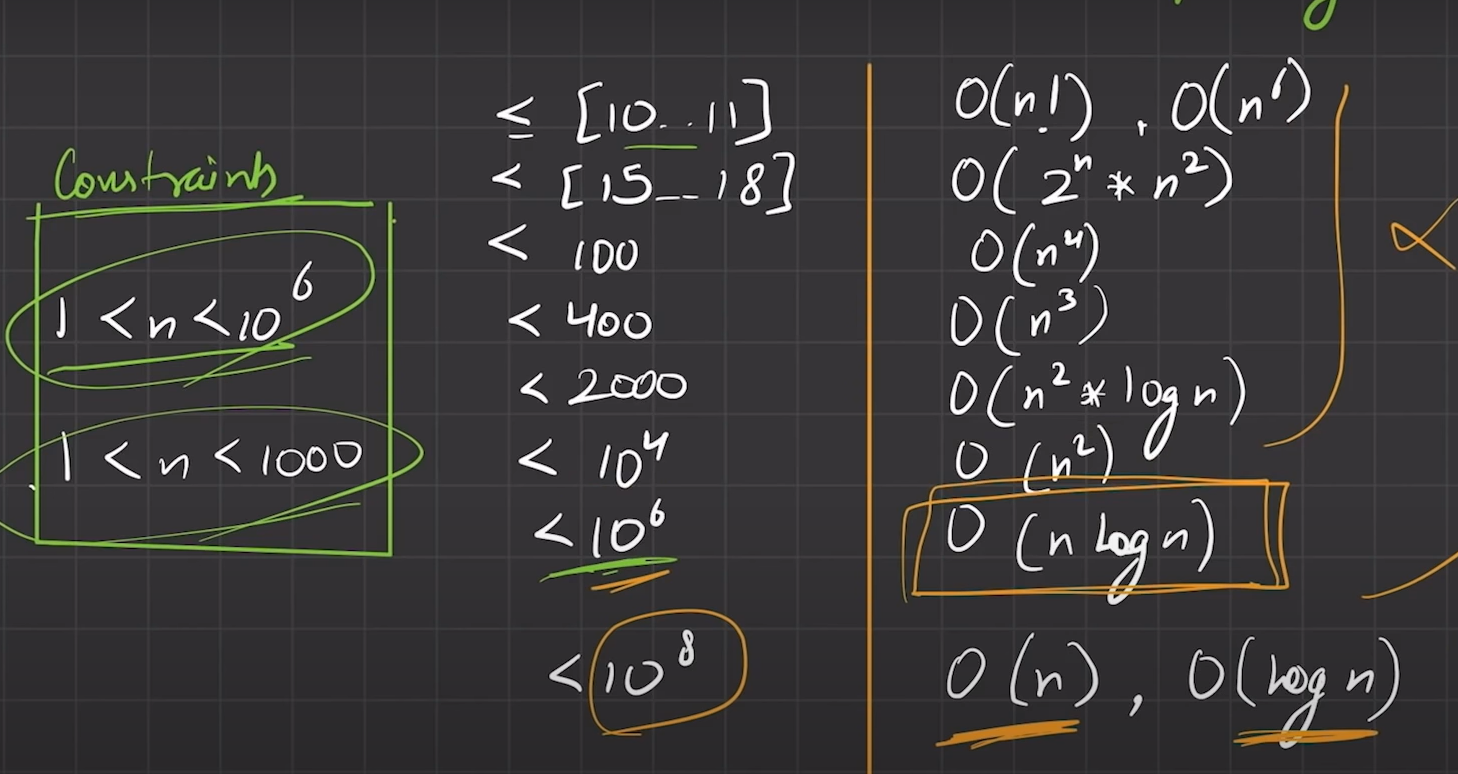 Constraints
1 < n < 10⁶
1 < n < 1000
≤ [10...11] O(n!), O(n⁶)
< [15...18] O(2ⁿ * n²)
< 100 O(n⁴)
< 400 O(n³)
< 2000 O(n² * log n)
< 10⁴ O(n²)
< 10⁶ O(n log n)
< 10⁸ O(n), O(log n)